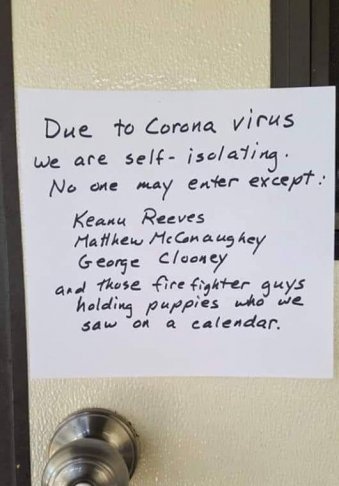 Due to Corona virus
we are self-isolating.
No one may enter except:
Keanu Reeves
Matthew McConaughey
George Clooney
and those firefighter guys
holding puppies who we
saw on a calendar.